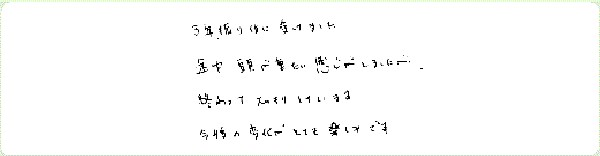 3年振り位に受けました
最中 頭が軽い感じがしましたが、
終わって スッキリ しています
今後の変化がとても楽しみです